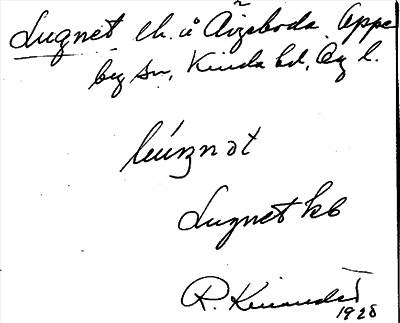 Lugnet lh. u Äizeboda Oppe
by sn, Kinda hd, Ög l.
lúngnət
Lugnet kb
R. Kinander
1928